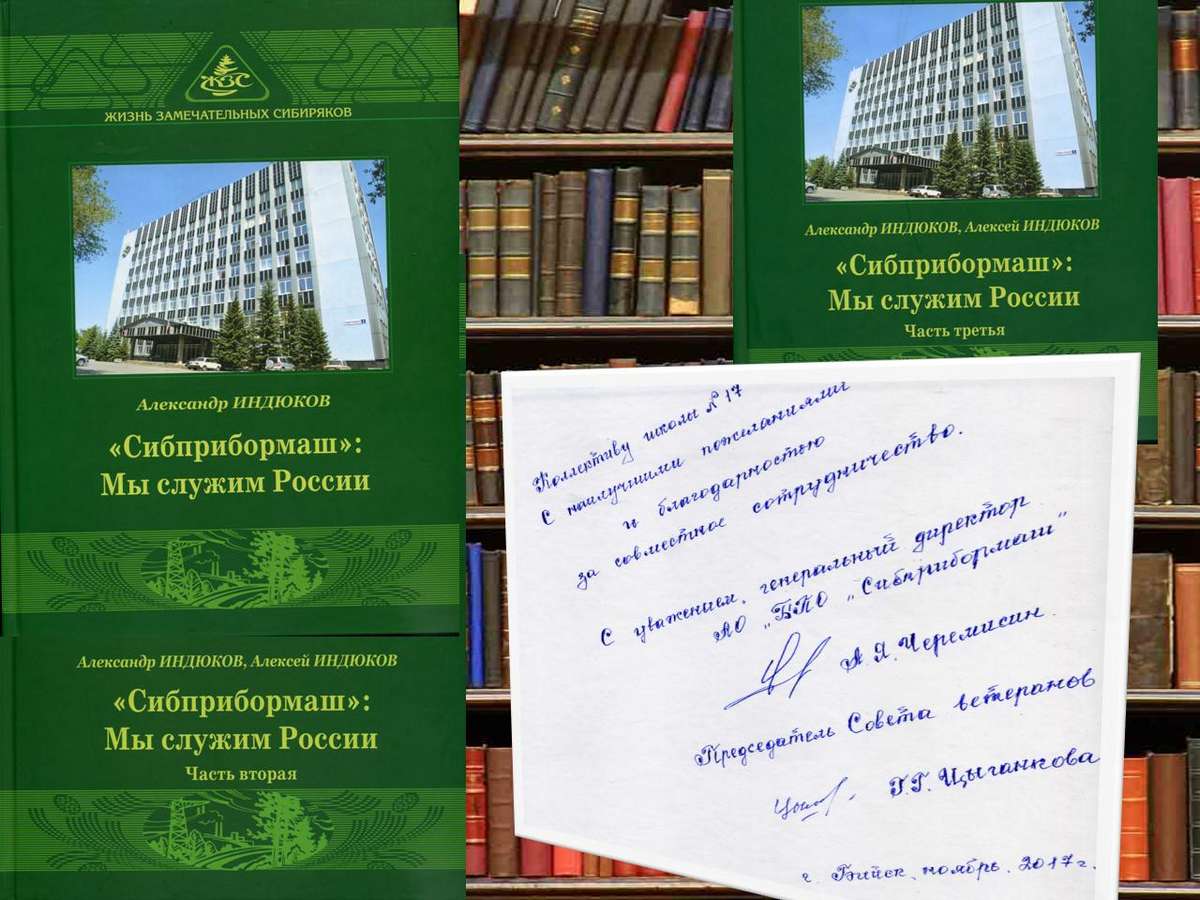 ЖЗС
ЖИЗНЬ ЗАМЕЧАТЕЛЬНЫХ СИБИРЯКОВ
Александр ИНДЮКОВ
«Сибприбормаш»:
Мы служим России
Александр ИНДЮКОВ, Алексей ИНДЮКОВ
«Сибприбормаш»:
Мы служим России
Часть вторая
Александр ИНДЮКОВ, Алексей ИНДЮКОВ
«Сибприбормаш»:
Мы служим России
Часть третья
Коллективу школы №17
С наилучшими пожеланиями
и благодарностью
за совместное сотрудничество.
С уважением, генеральный директор
АО „БПО „Сибприбормаш"
А.Я.Черемисин.
Председатель Совета ветеранов
Г.Г.Цыганкова
г. Бийск, ноябрь. 2017г.